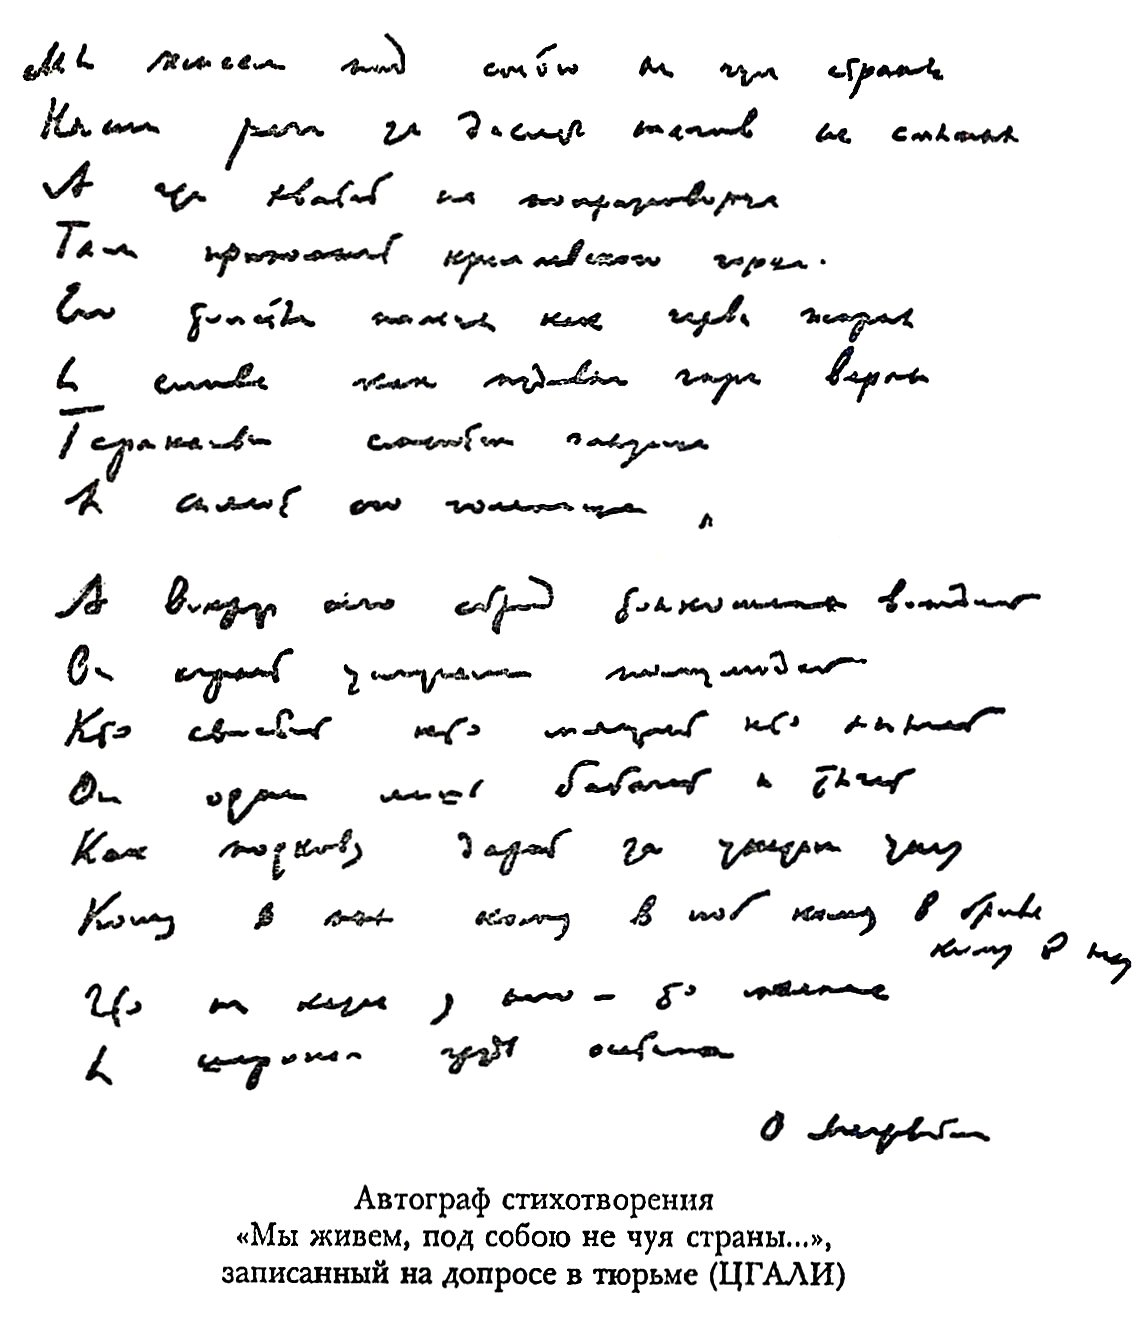 Мы живем под собою не чуя страны
Наши речи за десять шагов не слышны
А где хватит на полразговорца
Там припомнят кремлевского горца.
Его толстые пальцы как черви жирны
И слова как пудовые гири верны
Тараканьи смеются глазища
И сияют его голенища
А вокруг него сброд тонкошеих вождей
Он играет услугами полулюдей
Кто свистит кто мяучит кто хнычет
Он один лишь бабачит и тычет
Как подкову дарит за указом указ
Кому в пах кому в лоб кому в бровь
кому в глаз
Что ни казнь у него – то малина
И широкая грудь осетина
О Мандельштам
Автограф стихотворения
«Мы живем, под собою не чуя страны...»,
записанный на допросе в тюрьме (ЦГАЛИ)